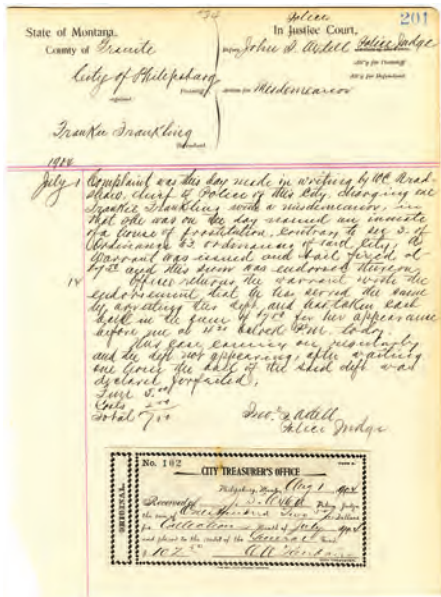 Police
201
State of Montana.
In Justice Court,
County of Granite
Before John S. Axtell Police Judge
City of Philipsburg
Plaintiff
Att'y for Plaintiff
Att'y for Defendant
against
Action for Misdemeanor
Frankie Frankling
Defendant
1904
July 1 Complaint was this day made in writing by W.C.
chief of Police of this City, charging one
Frankie Frankling with a misdemeanor, in
that she was on the day named an inmate
of a house of prostitution, contrary to sec 3. of
Ordinance 43 ordinances of said City, a
warrant was issued and bail fixed at
and this sum was endorsed thereon
14 Officer returns the warrant with the
endorsement that he has served the same
by arresting this deft and has taken cash
bail in the sum of for her appearance
before me at o'clock P.M. today.
This case coming on regularly
and the deft not appearing, after waiting
one hour the bail of the said deft was
declared forfeited,
Fine 5.00
Costs 2.00
Total 7.00
Police Judge
ORIGINAL.
No. 102
CITY TREASURER'S OFFICE
Philipsburg, Mont., Aug 1 1904
Received of Police Judge
the sum of One Hundred Two Dollars
for Collection Month of July 1904
and placed to the credit of the General Fund
$102